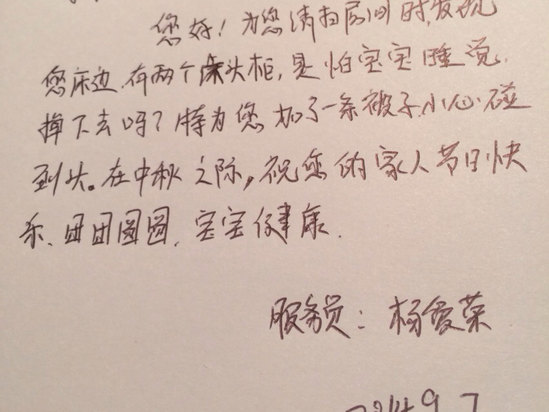 您好！为您清扫房间时,发现
您床边,有两个床头柜,是怕宝宝睡觉,
掉下去吗？特为您加了一条被子,小心碰
到头。在中秋之际,祝您的家人节日快
乐、团团圆圆,宝宝健康.
服务员：杨爱荣
2014 9 7